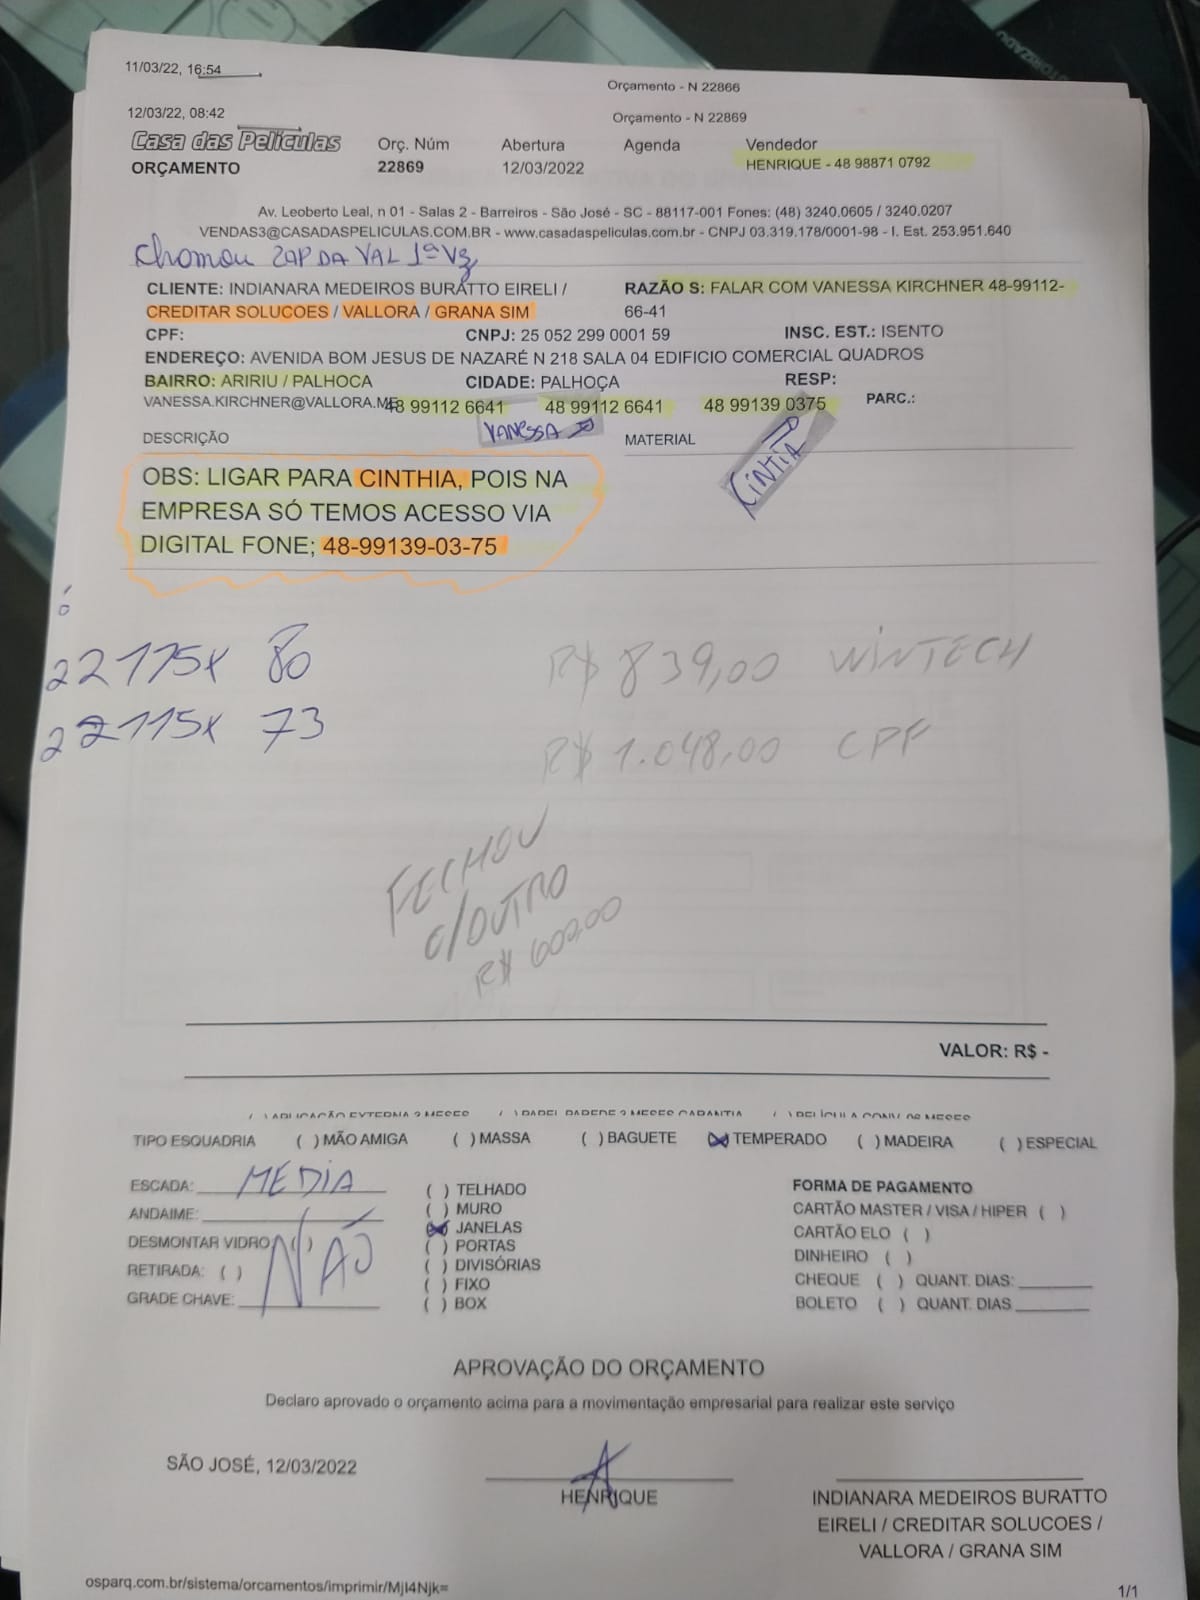 11/03/22, 16:54
Orçamento - N 22866
12/03/22, 08:42
Orçamento - N 22869
Casa das Películas
Orç. Núm Abertura Agenda Vendedor
ORÇAMENTO 22869 12/03/2022 HENRIQUE - 48 98871 0792
Av. Leoberto Leal, n 01 - Salas 2 - Barreiros - São José - SC - 88117-001 Fones: (48) 3240.0605 / 3240.0207
VENDAS3@CASADASPELICULAS.COM.BR - www.casadaspeliculas.com.br - CNPJ 03.319.178/0001-98 - I. Est. 253.951.640
Chamou ZAP DA VAL 1ª VZ
CLIENTE: INDIANARA MEDEIROS BURATTO EIRELI / RAZÃO S: FALAR COM VANESSA KIRCHNER 48-99112-
CREDITAR SOLUCOES / VALLORA / GRANA SIM 66-41
CPF: CNPJ: 25 052 299 0001 59 INSC. EST.: ISENTO
ENDEREÇO: AVENIDA BOM JESUS DE NAZARÉ N 218 SALA 04 EDIFICIO COMERCIAL QUADROS
BAIRRO: ARIRIU / PALHOCA CIDADE: PALHOÇA RESP:
VANESSA.KIRCHNER@VALLORA.ME 48 99112 6641 48 99112 6641 48 99139 0375 PARC.:
VANESSA
CINTIA
DESCRIÇÃO MATERIAL
OBS: LIGAR PARA CINTHIA, POIS NA
EMPRESA SÓ TEMOS ACESSO VIA
DIGITAL FONE; 48-99139-03-75
22 115X 80
22 115X 73
R$ 839,00 WINTECH
R$ 1.048,00 CPF
FECHOU
C/OUTRO
R$ 600,00
VALOR: R$ -
( ) APLICAÇÃO EXTERNA 3 MESES ( ) PAPEL PAREDE 3 MESES GARANTIA
TIPO ESQUADRIA ( ) MÃO AMIGA ( ) MASSA ( ) BAGUETE (X) TEMPERADO ( ) MADEIRA ( ) ESPECIAL
ESCADA: MEDIA
ANDAIME:
DESMONTAR VIDRO ( )
RETIRADA: ( )
GRADE CHAVE:
NÃO
( ) TELHADO
( ) MURO
(X) JANELAS
( ) PORTAS
( ) DIVISÓRIAS
( ) FIXO
( ) BOX
FORMA DE PAGAMENTO
CARTÃO MASTER / VISA / HIPER ( )
CARTÃO ELO ( )
DINHEIRO ( )
CHEQUE ( ) QUANT. DIAS:
BOLETO ( ) QUANT. DIAS
APROVAÇÃO DO ORÇAMENTO
Declaro aprovado o orçamento acima para a movimentação empresarial para realizar este serviço
SÃO JOSÉ, 12/03/2022
HENRIQUE
INDIANARA MEDEIROS BURATTO
EIRELI / CREDITAR SOLUCOES /
VALLORA / GRANA SIM
osparq.com.br/sistema/orcamentos/imprimir/MjI4Njk=
1/1